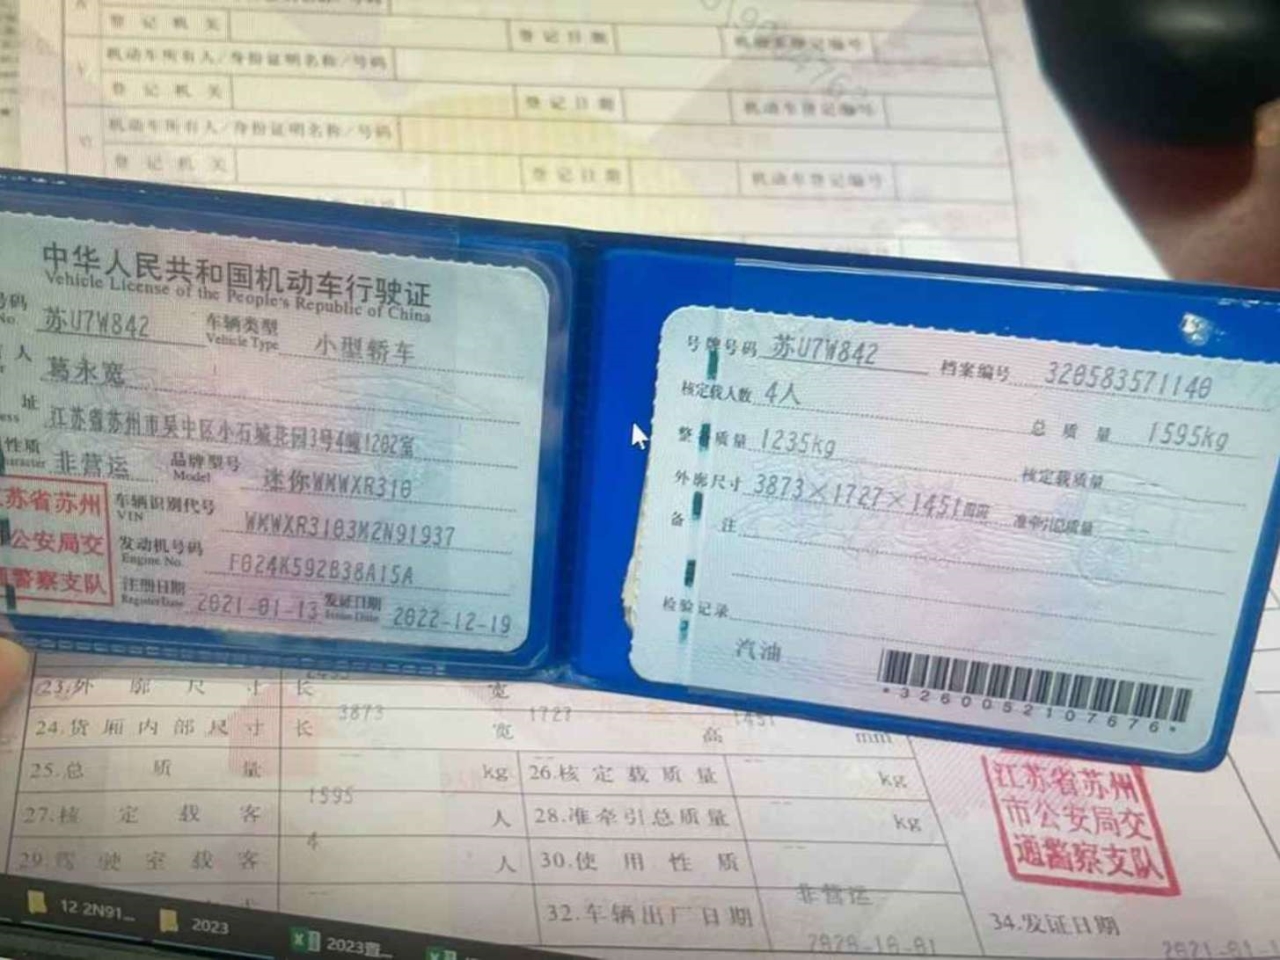 登记机关 登记日期 机动车登记编号
机动车所有人/身份证明名称/号码
登记机关 登记日期 机动车登记编号
机动车所有人/身份证明名称/号码
登记机关 登记日期 机动车登记编号
中华人民共和国机动车行驶证
Vehicle License of the People's Republic of China
号码 苏U7W842 车辆类型 小型轿车
No. Vehicle Type
人 葛永宽
址 江苏省苏州市吴中区小石城花园3号4幢1202室
性质 非营运 品牌型号 迷你WMWXR310
Model
车辆识别代号 WMWXR3103M2N91937
VIN
发动机号码 F024K592B38A15A
Engine No.
注册日期 2021-01-13 发证日期 2022-12-19
Register Date Issue Date
苏省苏州
公安局交
通警察支队
号牌号码 苏U7W842 档案编号 320583571140
核定载人数 4人 总质量 1595kg
整备质量 1235kg 核定载质量 --
外廓尺寸 3873×1727×1451mm 准牵引总质量 --
备注
检验记录
汽油
*3260052107676*
23.外廓尺寸 长 3873 宽 1727 1451
24.货厢内部尺寸 长 宽 高 mm
25.总质量 1595 kg 26.核定载质量 -- kg
27.核定载客 4 人 28.准牵引总质量 -- kg
29.驾驶室载客 人 30.使用性质 非营运
32.车辆出厂日期 2020-10-01 34.发证日期
江苏省苏州
市公安局交
通警察支队
12 2N91... 2023